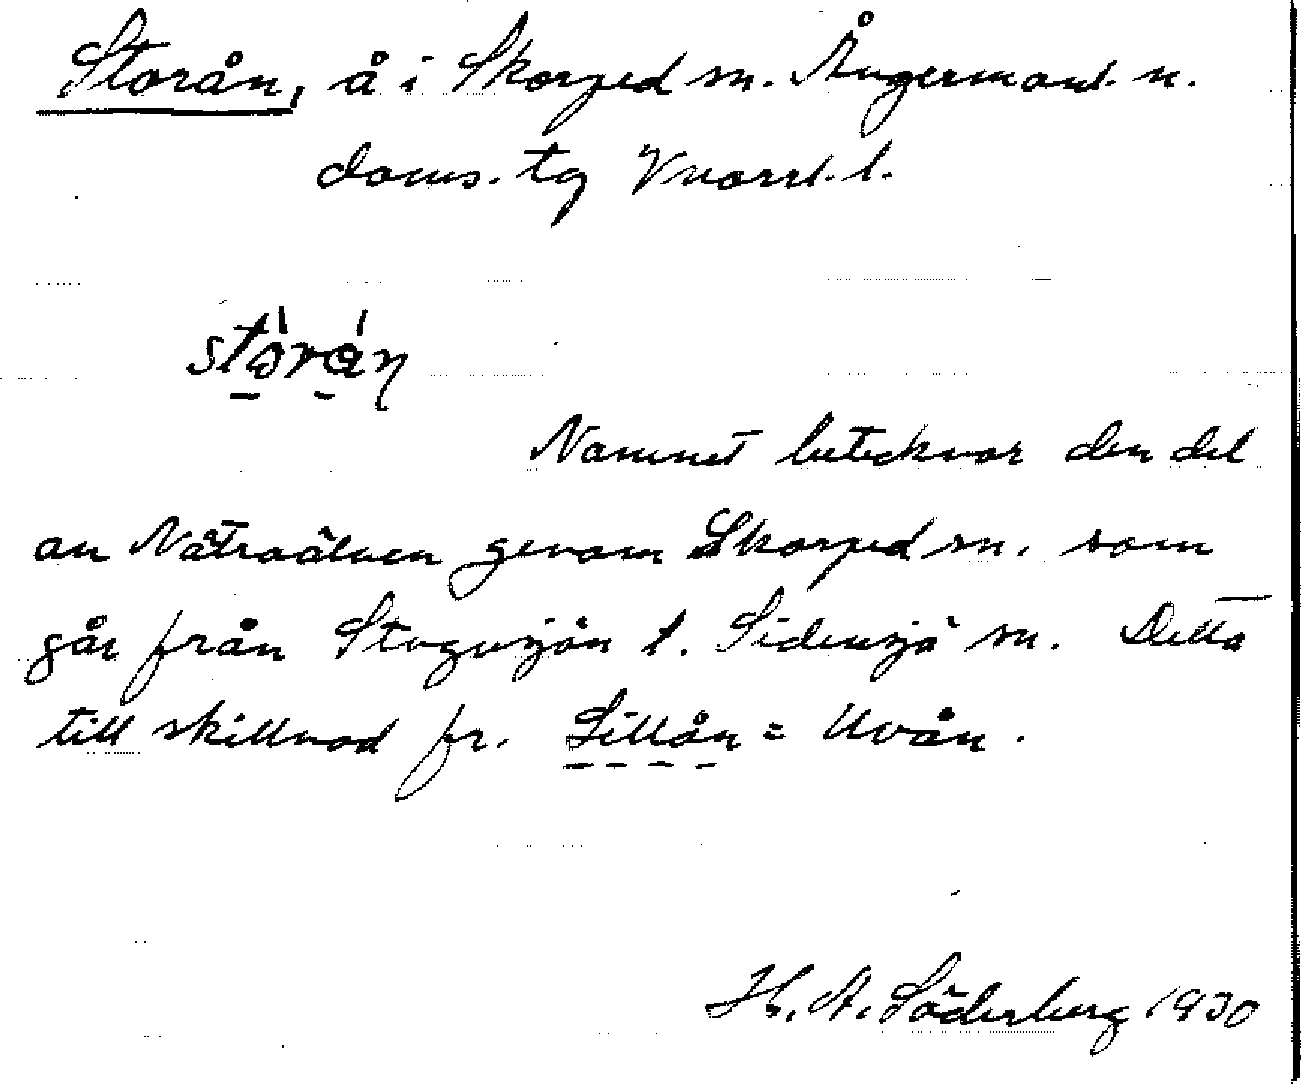 Storån, å i Skorped sn. Ångermanl. n.
doms. tg Vnorrl. l.
Namnet betecknar den del
av Nätraälven genom Skorped sn. som
går från Stugusjön t. Sidensjö sn. Detta
till skillnad fr. Lillån = Uvån.
H. A. Söderberg 1930